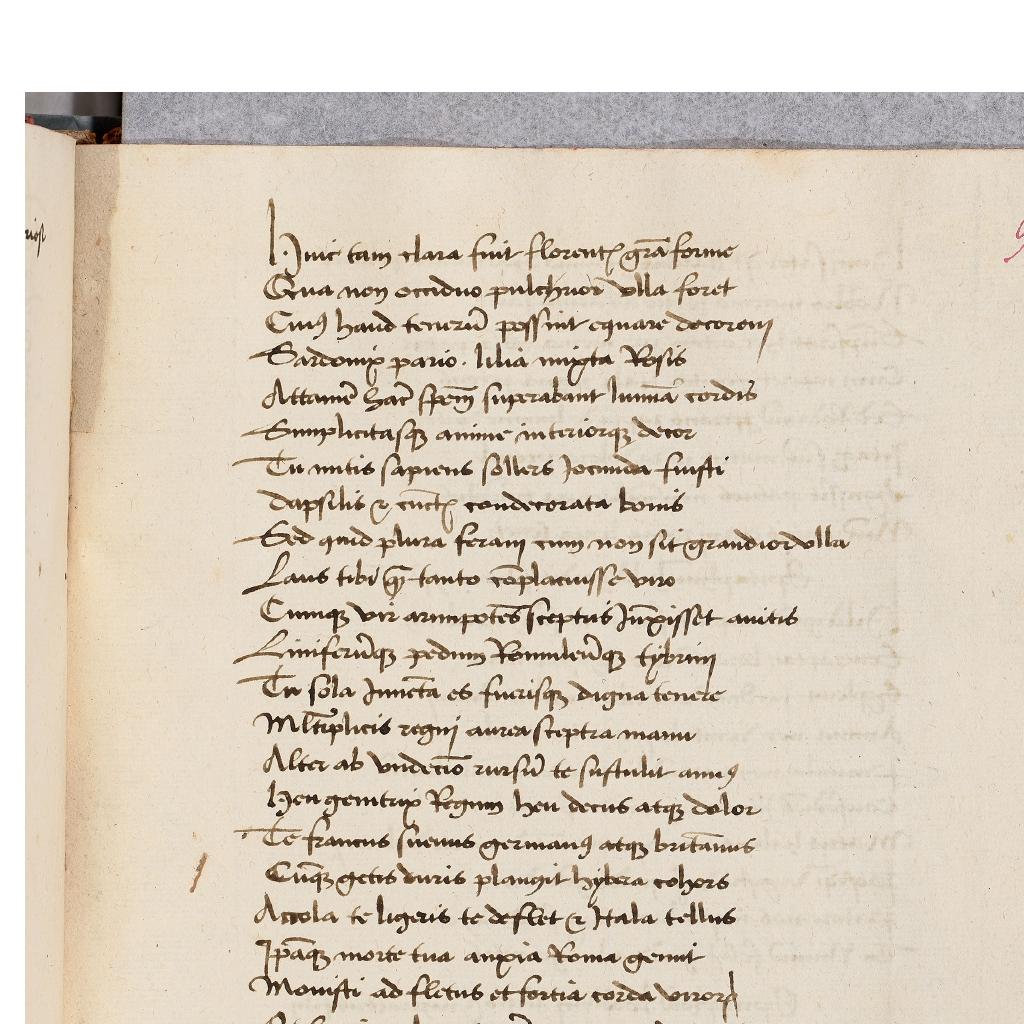 Huic tam clara fuit florentꝭ grã forme
Qua non occiduo pulchrior vlla foret
Cuiꝰ haud tenerũ possint equare decorem
Sardonix pario. lilia mixta Rosis
Attamẽ hãc spẽm superabant lumĩa cordis
Simplicitasqꝫ anime interiorqꝫ decor
Tu mitis sapiens sollers Jocunda fuisti
dapsilis & cũctꝭ condecorata bonis
Sed quid plura feram cum non sit grandior vlla
Laus tibi q̃ tanto cõplacuisse viro
Cumqꝫ vir armipotẽs sceptris Jũxisset auitis
Liniferũqꝫ pedum Romuleũqꝫ tybrim
Tu sola Juncta es fuerisqꝫ digna tenere
Mltĩplicis regni aurea sceptra manu
Alter ab vndecĩo rursũ te sustulit annꝰ
Heu genitrix Regum heu decus atqꝫ dolor
Te francus sueuus germanꝰ atqꝫ britãnus
Cũqꝫ getis duris plangit hybera cohors
Accola te ligeris te deflet & Itala tellus
Ipãqꝫ morte tua anxia Roma gemit
Mouisti ad fletus et fortia corda virorꝝ